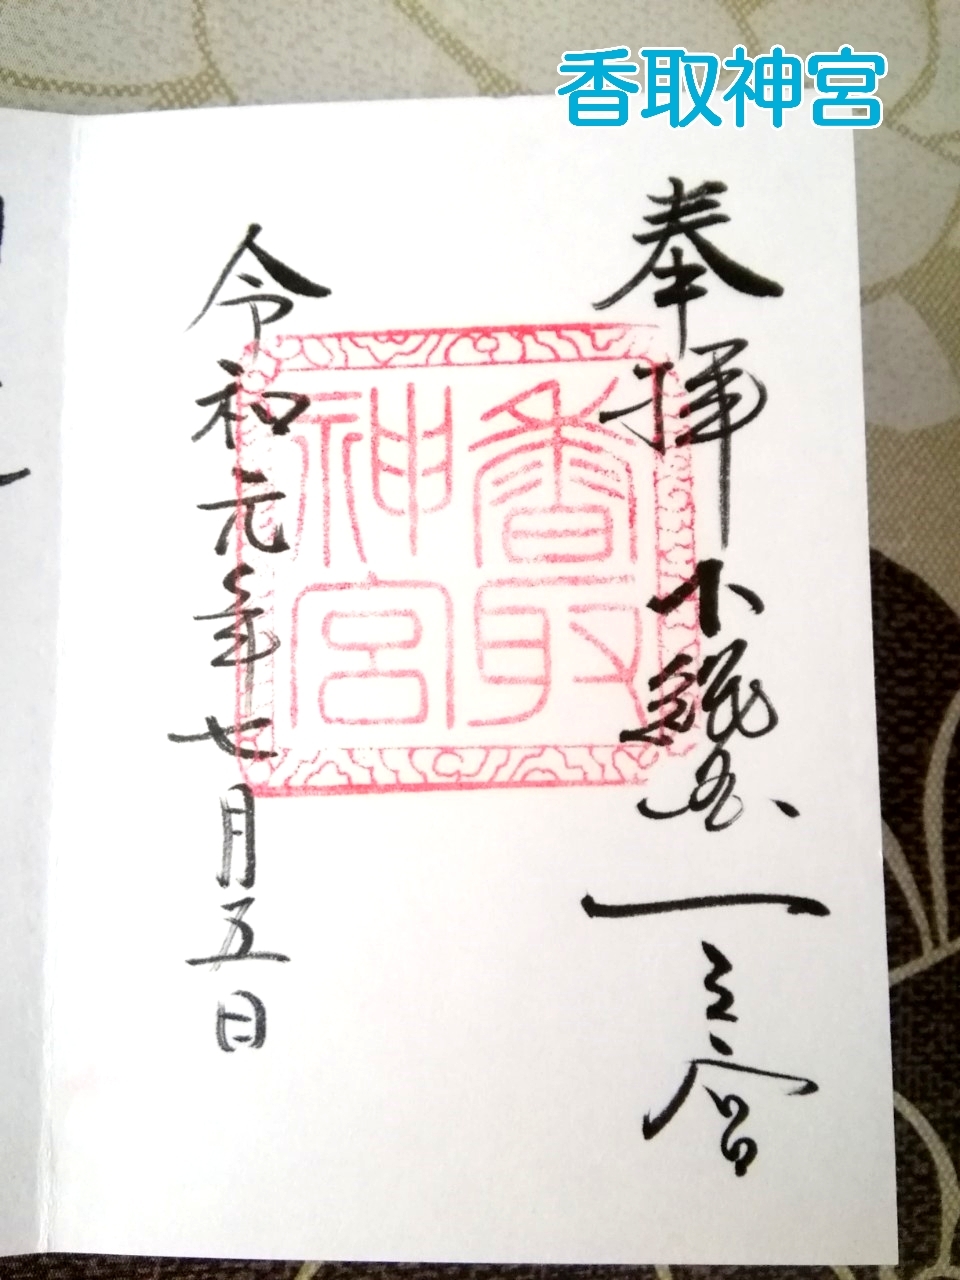 香取神宮
奉拝 下総国一之宮
香取
神宮
令和元年七月五日